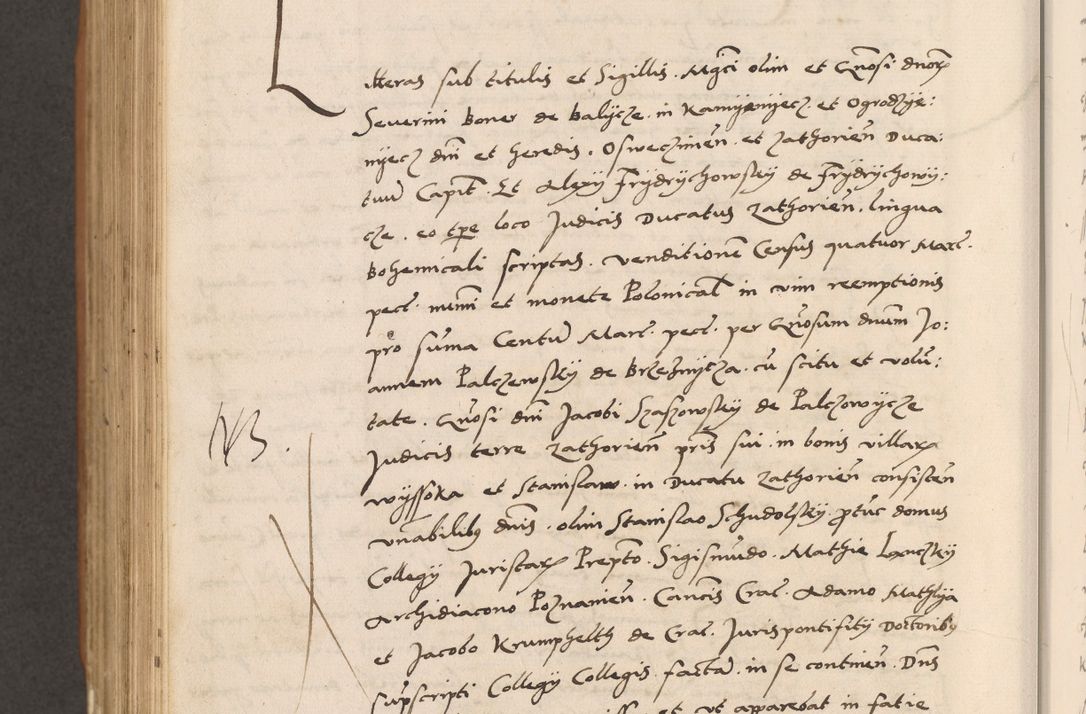 Litteras sub titulis et Sigillis. Mgci olim et Gnosi dnorum
Severini Boner de Balycze. in Kamyenyecz. et Ogrodzye:
nyecz dni et heredis. Osweczimen. et Zathorien Duca:
tuu Capit. Et Alexy Frydrychowsky de Frydrychowy:
cze. eo tpe loco Judicis Ducatus Zathorien. lingua
Bohemicali scriptas. venditionem Census quatuor Marc.
pec. numi et monete Polonical in vim reemptionis
pro suma Centu Marc. pec. per Gnosum dnum Jo:
annem Palczewsky de Brzeznycza. cu scitu et volu:
tate. Gnosi dni Jacobi Szaszowsky de Palczowycze
Judicis terre Zathorien pris sui. in bonis villarum
Wyssoka et Stanislaw. in Ducatu Zathorien consisten
vnabilibus dnis. olim Stanislao Schudolsky. ptuc domus
Collegy Juristarum Prepto. Sigismudo. Mathie
Archidiacono Poznanien. Cancis Crac. Adamo Mathyja
et Jacobo Krumphelth de Crac. Juris pontifity Doctoribus
supscripti Collegy Collegis. factam. in se continen. Dns
et vt apparebat in fatie
NB.